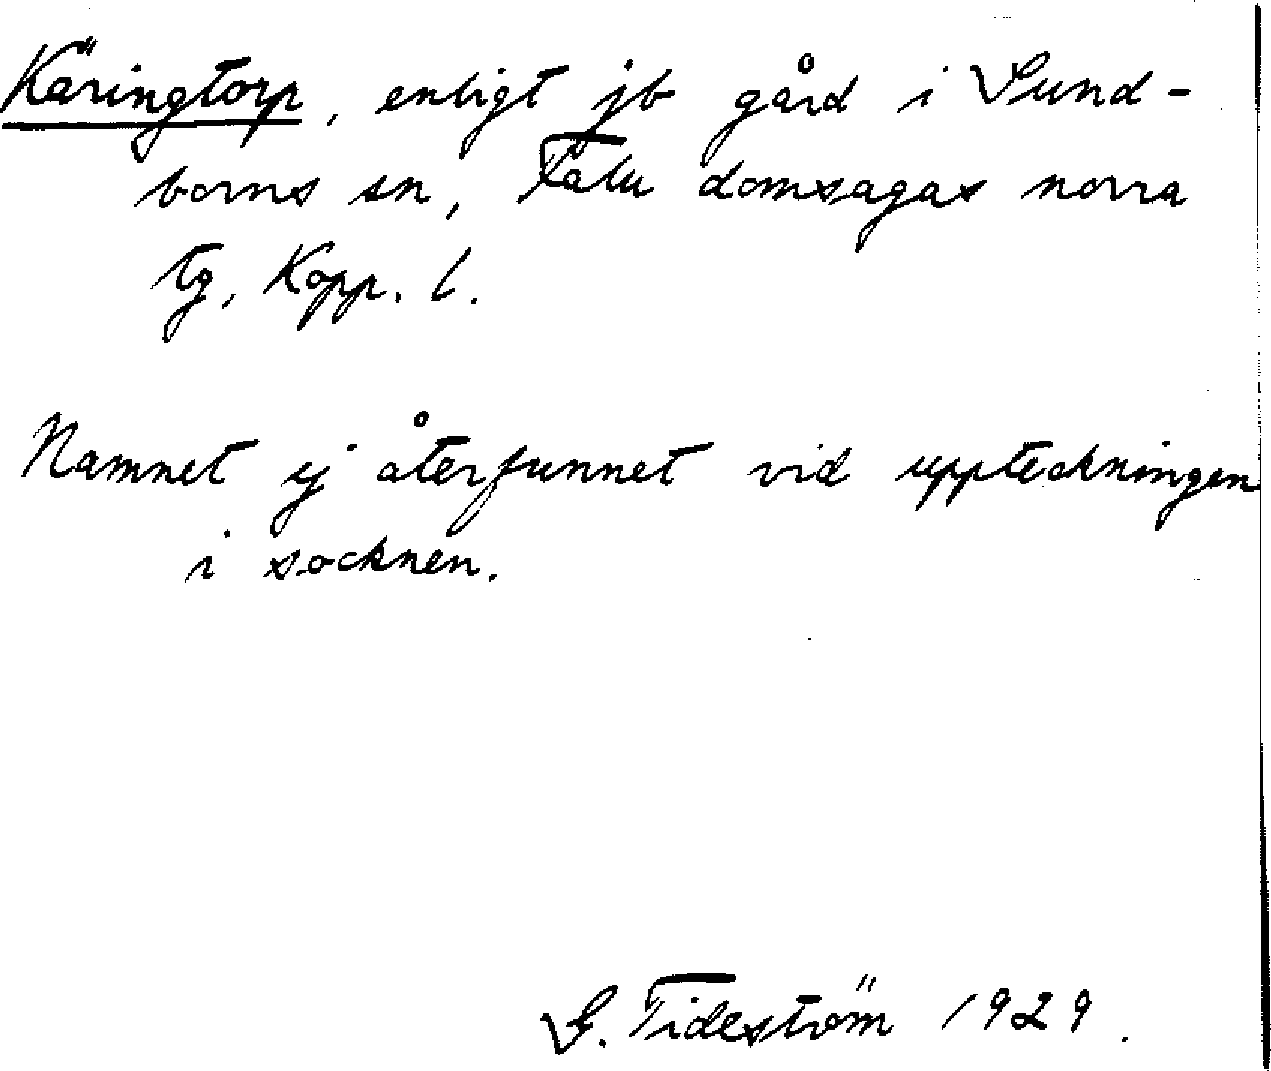 Käringtorp, enligt jb gård i Sund-
borns sn, Falu domsagas norra
tg, Kopp. l.
Namnet ej återfunnet vid uppteckningen
i socknen.
G. Tideström 1929.